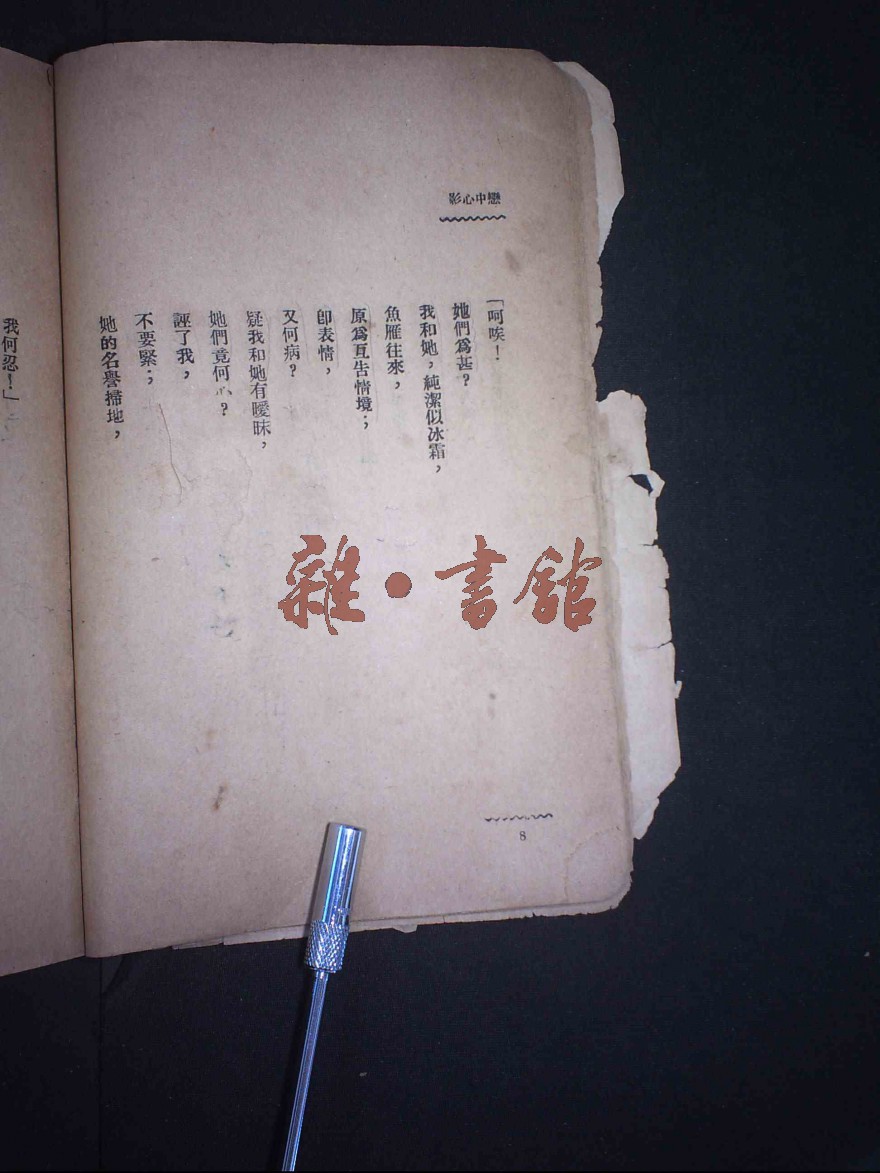 影心中戀
「呵唉！
她們爲甚？
我和她，純潔似冰霜，
魚雁往來，
原爲互告情境；
卽表情，
又何病？
疑我和她有曖昧，
她們竟何心？
誣了我，
不要緊；
她的名譽掃地，
我何忍！」
8
雜·書館